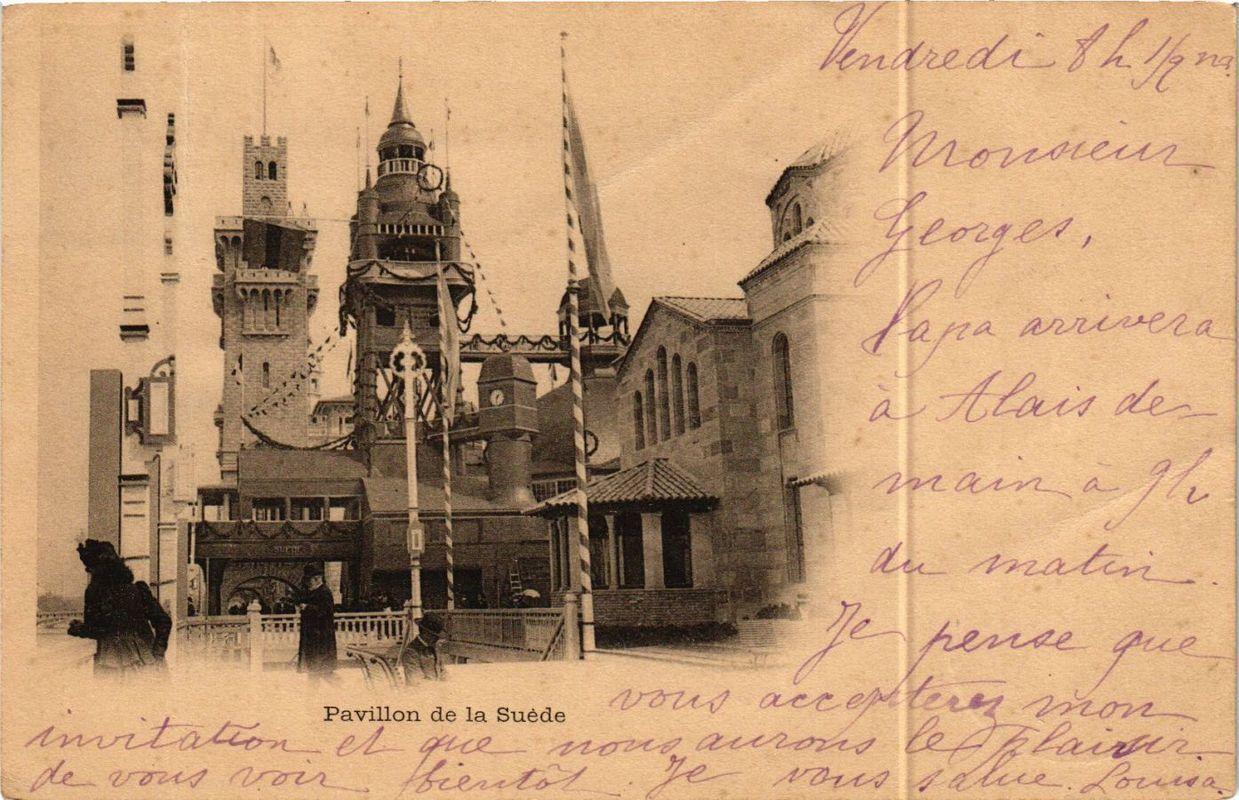 Vendredi 8h 1/2 ma
Monsieur
Georges,
Papa arrivera
à Alais de-
main à 9h
du matin.
Je pense que
vous accepterez mon
invitation et que nous aurons le plaisir
de vous voir bientôt. Je vous salue. Louisa.
SUÈDE
Pavillon de la Suède